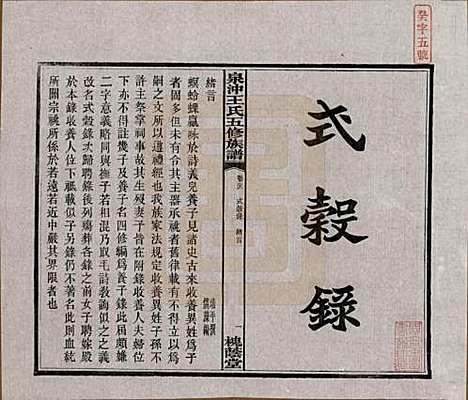 癸字五號
式穀錄
泉沖王氏五修族譜
卷 式穀錄 緒言
一
槐蔭堂
緒言
螟蛉蜾蠃詠於詩義兒養子見諸史古來收養異姓子為子
者固多但未有令其主器承祧者舊律載有不得立以為
嗣之文所以道禮經也我族家法規定收養異姓子孫不
許主祭掌祠事故其生歿子晉在附錄收養人夫婦齒
下但不得註幾子及養子名四修編為養子錄此屆頗嫌
二字意義略同與撫子若相混乃取毛詩敎誨爾似之之義
改名式穀錄次歸聘錄後列殤葬各錄之前女子聘嫁殿
於本錄收養人女聘欄下祧載此子另錄仍不著名此則紊
所關宗祧所係於若遠若近中嚴其界限者也